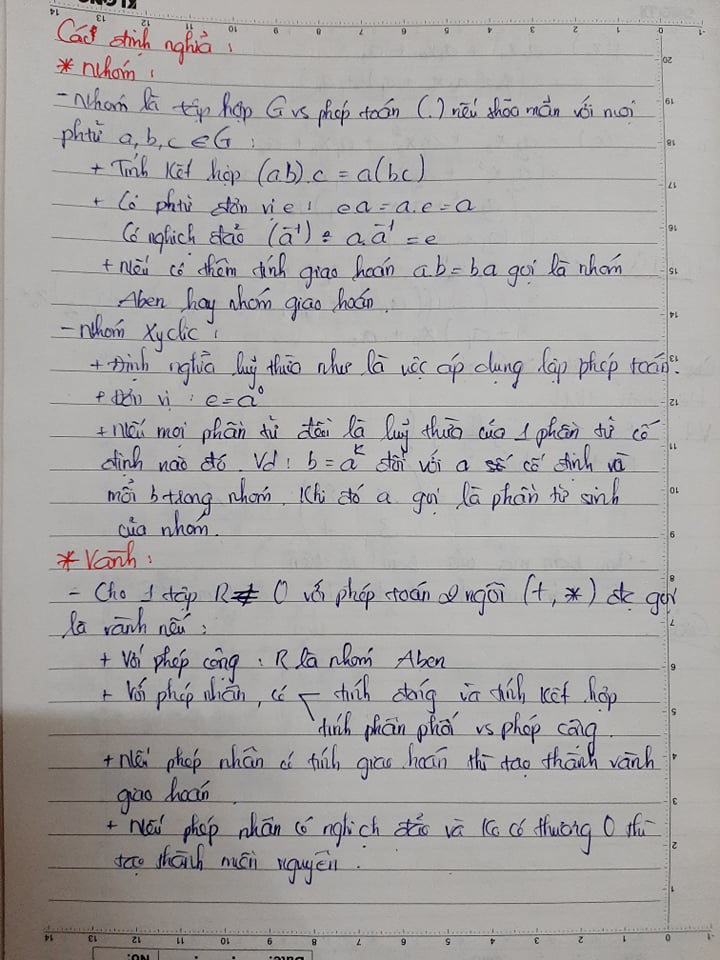 Các định nghĩa :
* Nhóm :
- Nhóm là tập hợp G vs phép toán (.) nếu thõa mãn với mọi
phtử a, b, c ∈ G :
+ Tính kết hợp (ab).c = a(bc)
+ Có phtử đơn vị e : ea = a.e = a
Có nghịch đảo (a⁻¹) : a.a⁻¹ = e
+ Nếu có thêm tính giao hoán a.b = b.a gọi là nhóm
Aben hay nhóm giao hoán.
- Nhóm Xyclic :
+ Định nghĩa luỹ thừa như là việc áp dụng lặp phép toán.
+ Đơn vị : e = a⁰
+ Nếu mọi phần tử đều là luỹ thừa của 1 phần tử cố
định nào đó. Vd : b = aᵏ đối với a cố định và
mỗi b trong nhóm. Khi đó a gọi là phần tử sinh
của nhóm.
* Vành :
- Cho 1 tập R ≠ 0 với phép toán 2 ngôi (+, *) đc gọi
là vành nếu :
+ Với phép cộng : R là nhóm Aben
+ Với phép nhân, có tính đóng và tính kết hợp
tính phân phối vs phép cộng.
+ Nếu phép nhân có tính giao hoán thì tạo thành vành
giao hoán.
+ Nếu phép nhân có nghịch đảo và Ko có thương 0 thì
tạo thành miền nguyên.
14 13 12 11 10 9 8 7 6 5 4 3 2 1 0 -1
20
19
18
17
16
15
14
13
12
11
10
9
8
7
6
5
4
3
2
1
14 13 12 11 10 9 8 7 6 5 4 3 2 1 0 -1
Date:
NO.